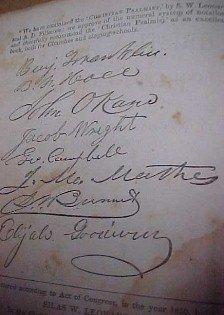 "We have examined the 'CHRISTIAN PSALMIST,' by S. W. Leonard
and A. D. Fillmore; we approve of the general system of notation
and cheerfully recommend the 'Christian Psalmist,' as an excellent
book, both for Churches and singing-schools.
Benj. Franklin.
B. K. Hall
John O'Kane
Jacob Wright
Geo. Campbell
J. M. Mathes
Elijah Goodwin
according to Act of Congress, in the year
SILAS W. LEON